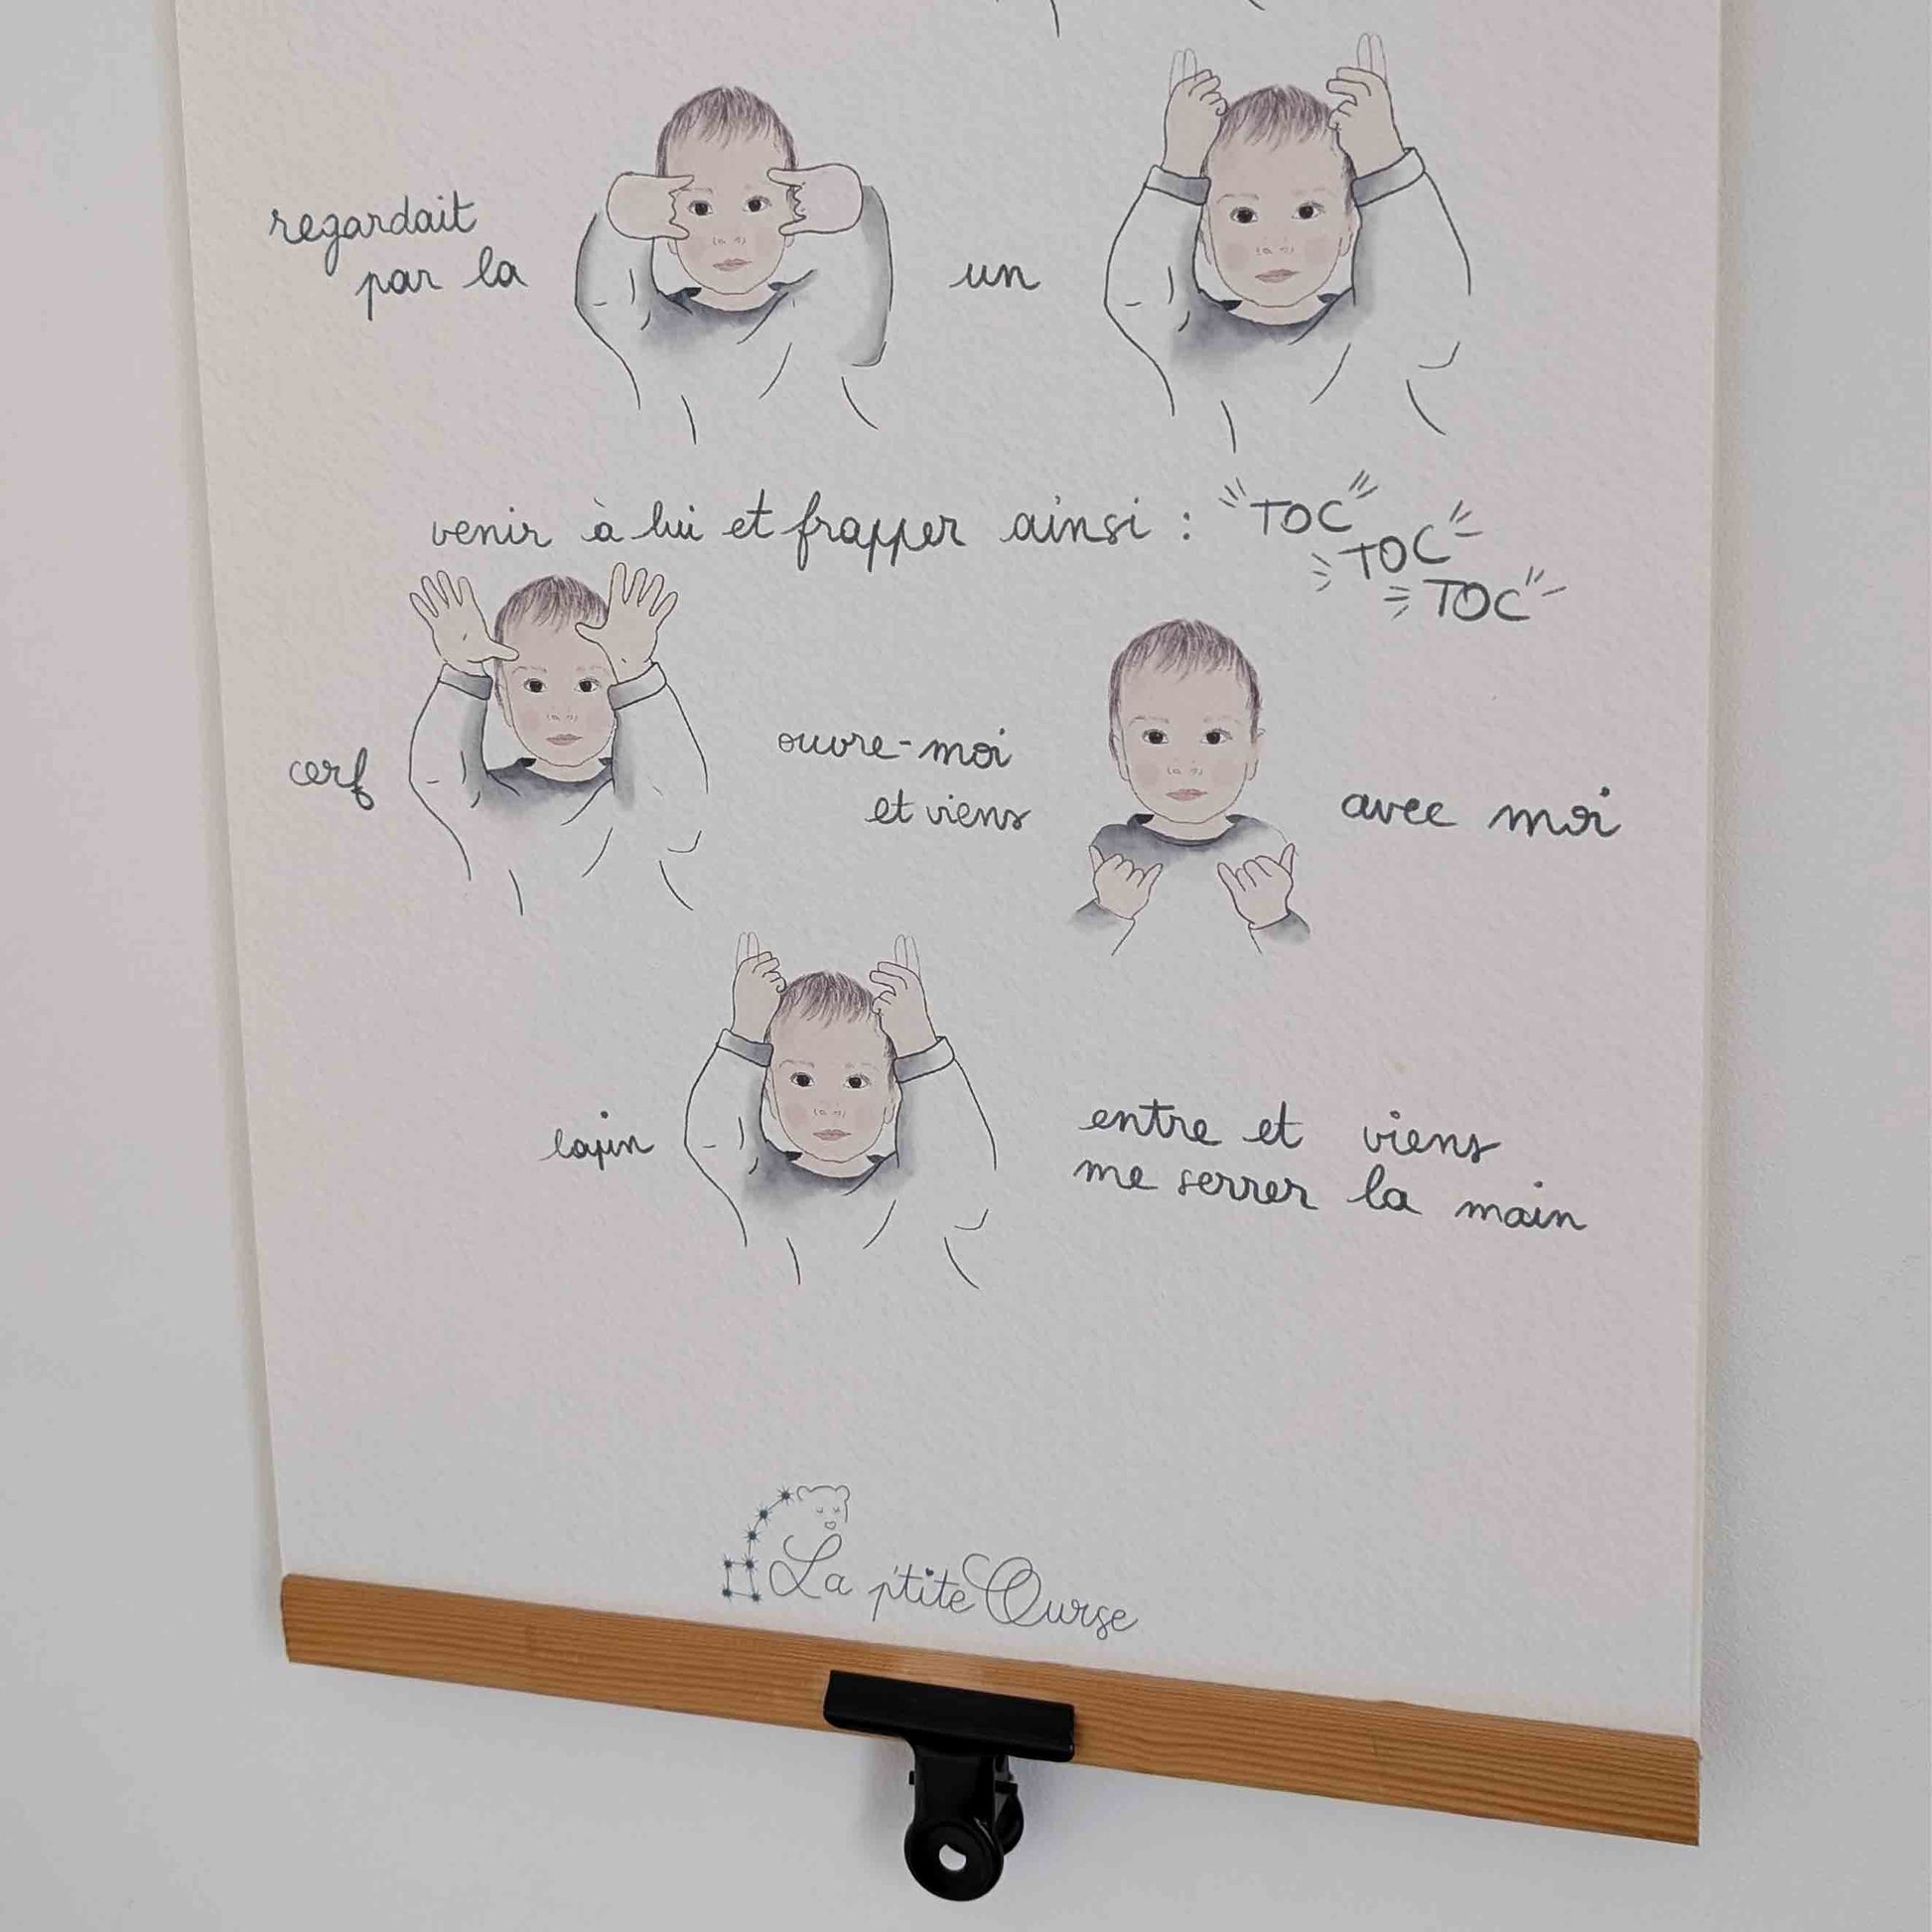 regardait
par la
un
venir à lui et frapper ainsi : "TOC"
TOC
TOC
cerf
ouvre-moi
et viens
avec moi
lapin
entre et viens
me serrer la main
La p'tite Ourse